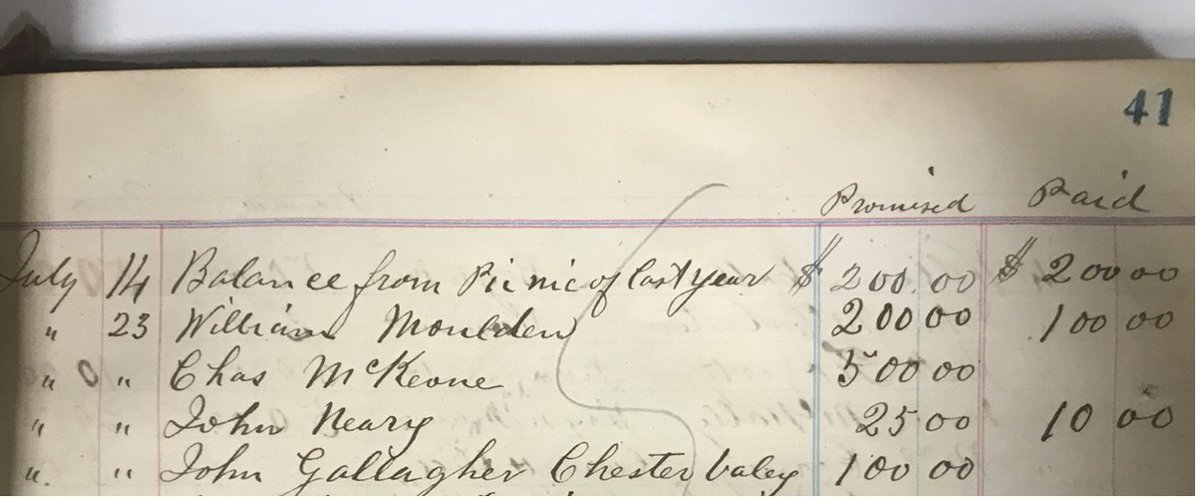 41
Promised Paid
July 14 Balance from Picnic of last year $ 200.00 $ 200 00
" 23 William Moulden 200 00 100 00
" " Chas McKeone 500 00
" " John Neary 25 00 10 00
" " John Gallagher Chester valey 100 00